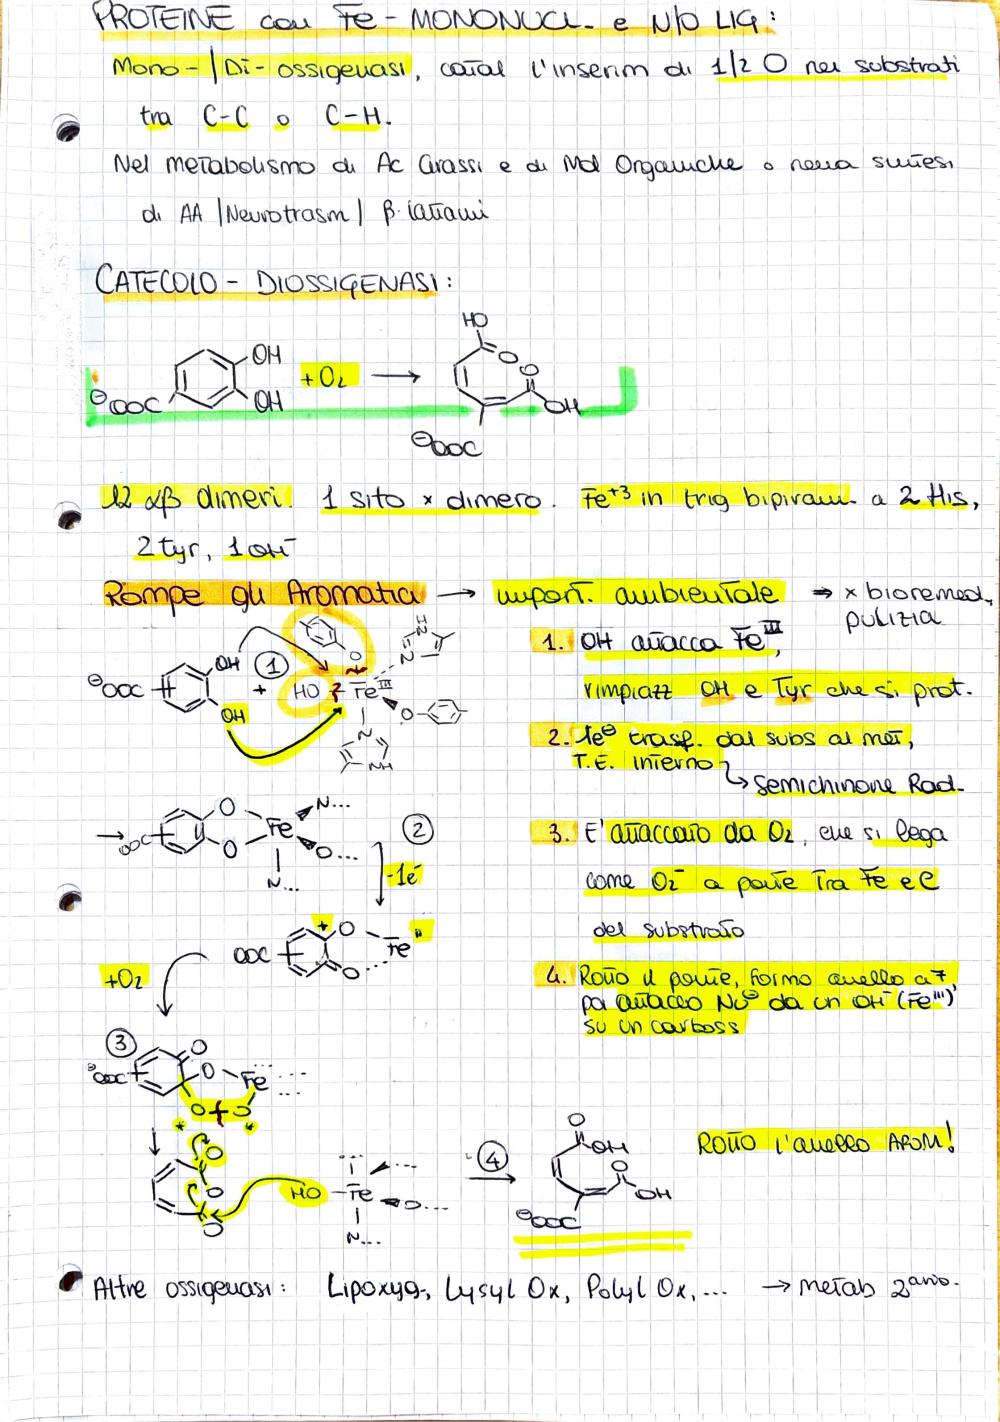 PROTEINE con Fe-MONONUCL. e N/O LIG:
Mono-/Di-ossigenasi, catal l'inserim di 1/2 O nei substrati
tra C-C o C-H.
Nel metabolismo di Ac Grassi e di Mol Organiche o nella sintesi
di AA |Neurotrasm| β-lattami
CATECOLO-DIOSSIGENASI:
HO
O
OH
OH
⊖OOC
+O₂ →
O
OH
⊖OOC
12 αβ dimeri. 1 sito x dimero. Fe⁺³ in trig bipiram. a 2 His,
2 tyr, 1 OH⁻
Rompe gli Aromatici → import. ambientale ⇒ x bioremed,
pulizia
1. OH attacca Feᴵᴵᴵ,
rimpiazz OH e Tyr che si prot.
2. 1e⊖ trasf. dal subs al met,
T.E. interno
↳ Semichinone Rad.
3. E' attaccato da O₂, che si lega
come O₂⁻ a ponte tra Fe e C
del substrato
4. Rotto il ponte, formo anello a 7
poi attacco Nu⊖ da un OH⁻ (Feᴵᴵᴵ)
su un carboss
⊖OOC
OH
OH
1
+
HO
Feᴵᴵᴵ
O
HN
N
O
N
NH
→
OOC
O
O
Fe
N...
O...
N...
2
-1e⁻
OOC
+
O
O...
Feᴵᴵ
+O₂
3
⊖OOC
O
O
Fe
O
O
*
*
O
O
O
HO
Fe
O...
N...
4
→
O
OH
O
OH
⊖OOC
ROTTO l'anello AROM!
Altre ossigenasi: Lipoxyg., Lysyl Ox, Polyl Ox, ... → metab 2° anno.